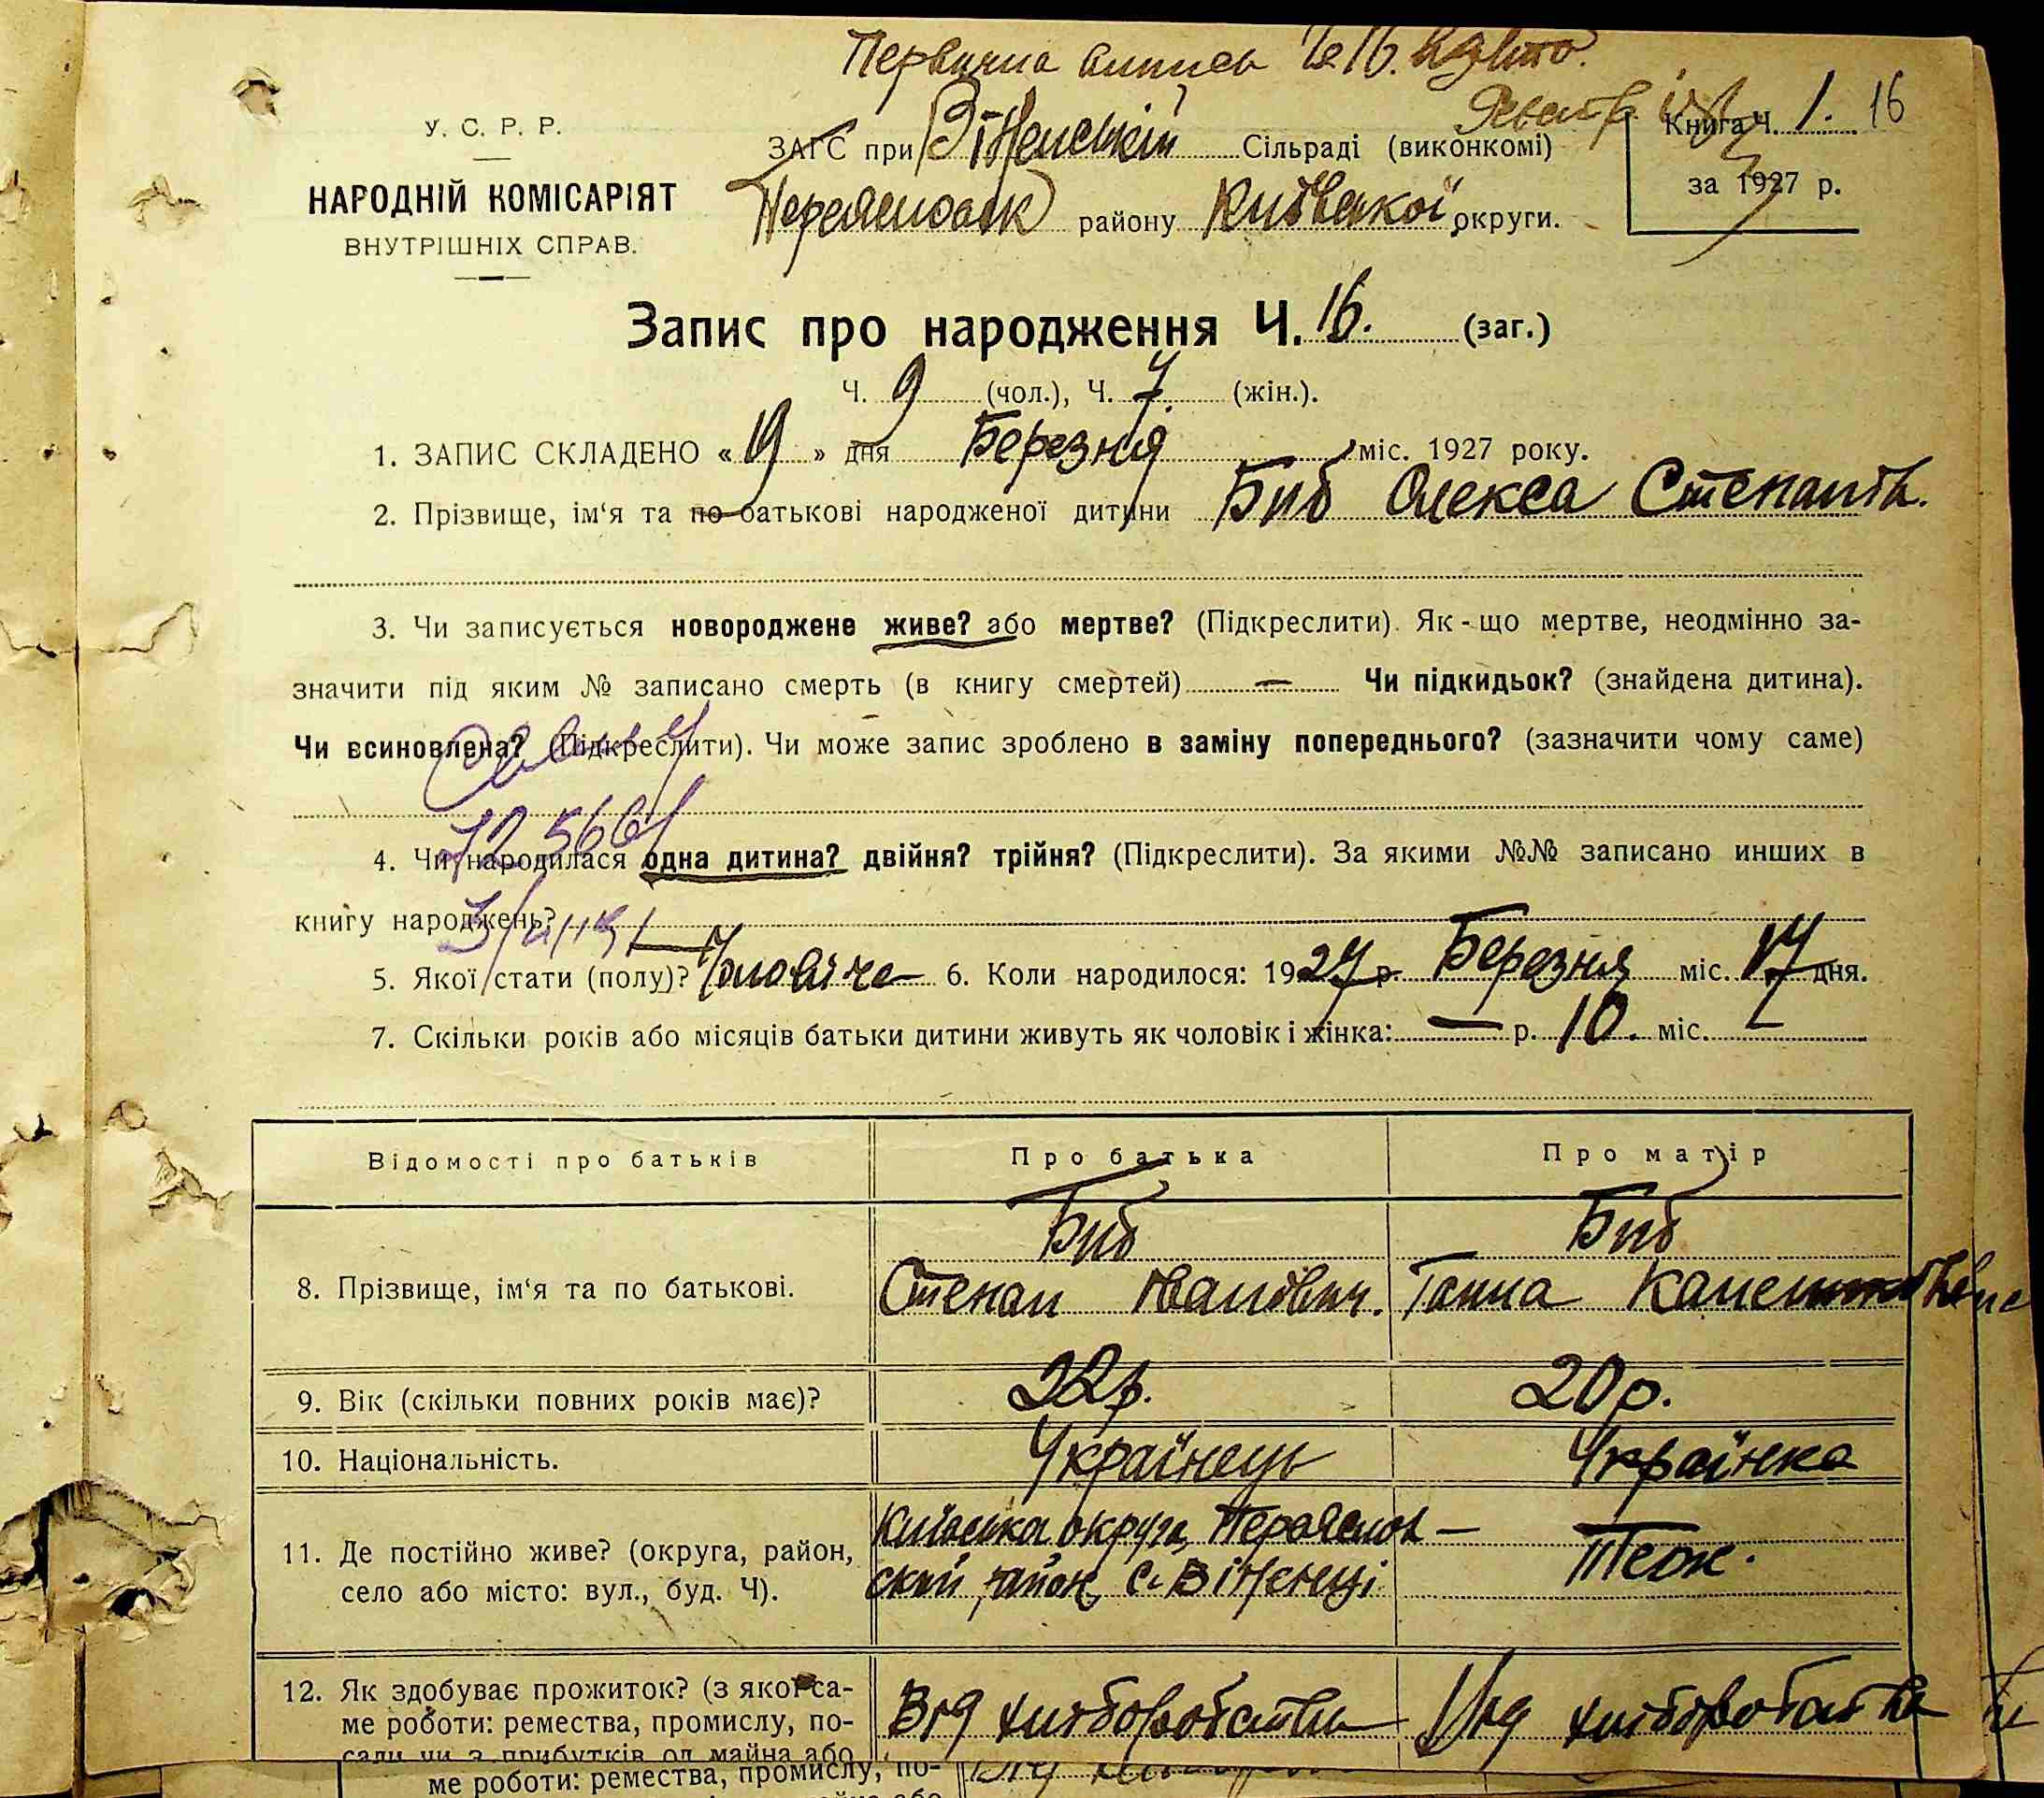 Первична
У. С. Р. Р.
НАРОДНІЙ КОМІСАРІЯТ
ВНУТРІШНІХ СПРАВ.
ЗАГС при Віненській Сільраді (виконкомі)
Переяславск району Київської округи.
Книга Ч. 1. 16
за 1927 р.
Запис про народження Ч. 16. (заг.)
Ч. 9 (чол.), Ч. 7. (жін.).
1. ЗАПИС СКЛАДЕНО «19» дня Березня міс. 1927 року.
2. Прізвище, ім'я та по батькові народженої дитини Биб Олекса Степанів.
3. Чи записується новороджене живе? або мертве? (Підкреслити). Як-що мертве, неодмінно за-
значити під яким № записано смерть (в книгу смертей) — Чи підкидьок? (знайдена дитина).
Чи всиновлена? (Підкреслити). Чи може запис зроблено в заміну попереднього? (зазначити чому саме)
4. Чи народилася одна дитина? двійня? трійня? (Підкреслити). За якими №№ записано инших в
книгу народжень? —
5. Якої стати (полу)? Чоловіче 6. Коли народилося: 1927 р. Березня міс. 17 дня.
7. Скільки років або місяців батьки дитини живуть як чоловік і жінка: — р. 10. міс.
Відомості про батьків Про батька Про матір
Биб Биб
8. Прізвище, ім'я та по батькові. Степан Іванович. Ганна
9. Вік (скільки повних років має)? 22 р. 20 р.
10. Національність. Українець Українка
Київська округа, Переяслов —
11. Де постійно живе? (округа, район, ский район, с. Віненці Теж.
село або місто: вул., буд. Ч).
12. Як здобуває прожиток? (з якої са- Від хліборобства Від хліборобства
ме роботи: ремества, промислу, по-
сади чи з прибутків од майна або
ме роботи: ремества, промислу, по-